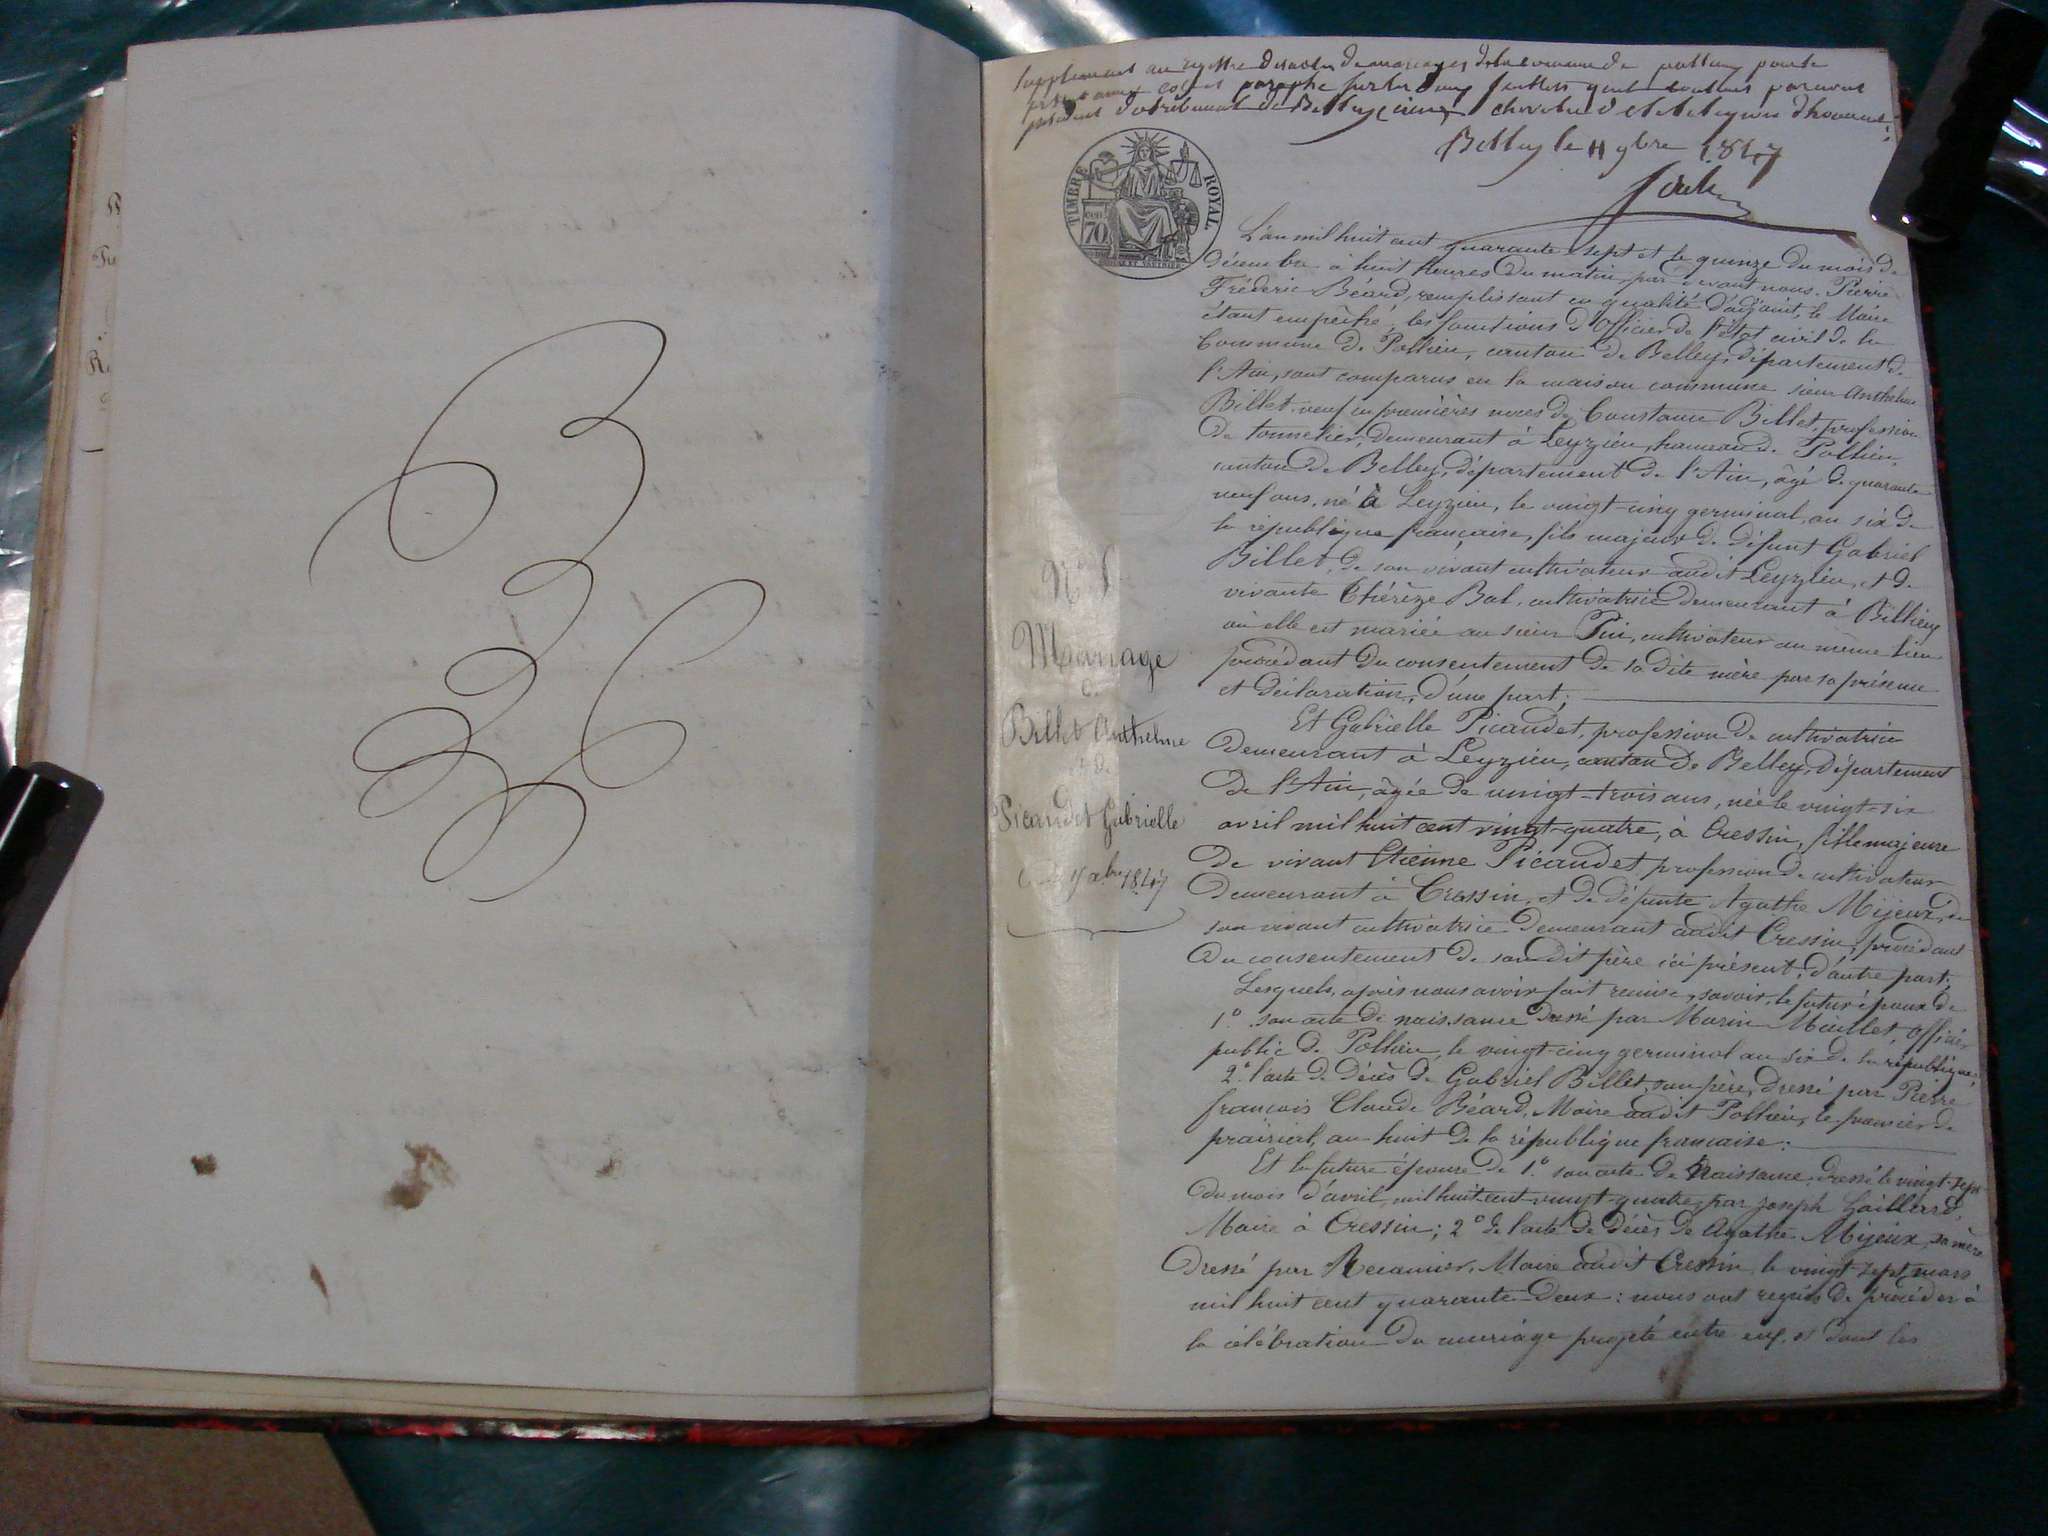 supplement au registre des actes de mariages de la commune de pollieu pour la
présente année coté et paraphé sur les deux feuillets par nous
président du tribunal de Belley chevalier de la légion d'honneur
Belley le 11 9bre 1847
TIMBRE ROYAL
70
L'an mil huit cent quarante-sept et le quinze du mois de
décembre à huit heures du matin, par devant nous Pierre
Fréderic Béard, remplissant en qualité d'adjoint, le Maire
étant empêché, les fonctions d'Officier de l'état civil de la
Commune de Pollieu, canton de Belley, département de
l'Ain, sont comparus en la maison commune sieur Anthelme
Billet, veuf en premières noces de Constance Billet, profession
de tonnelier, demeurant à Leyzieu, hameau de Pollieu,
canton de Belley, département de l'Ain, âgé de quarante
neuf ans, né à Leyzieu, le vingt-cinq germinal, an six de
la république française, fils majeur de défunt Gabriel
Billet, de son vivant cultivateur audit Leyzieu, et de
vivante Thérèze Bal, cultivatrice demeurant à Billieu
où elle est mariée au sieur Pin, cultivateur au même lieu
procédant du consentement de sa dite mère par sa présence
et déclaration, d'une part;
Et Gabrielle Picaudet, profession de cultivatrice
demeurant à Leyzieu, canton de Belley, département
de l'Ain, âgée de vingt-trois ans, née le vingt-six
avril mil huit cent vingt-quatre, à Cressin, fille majeure
de vivant Etienne Picaudet, profession de cultivateur
demeurant à Cressin, et de défunte Agathe Mijeux, de
son vivant cultivatrice demeurant audit Cressin, procédant
du consentement de son dit père ici présent, d'autre part;
Lesquels, après nous avoir fait remise, savoir, le futur époux de
1° son acte de naissance dressé par Marin Maillet, Officier
public de Pollieu, le vingt-cinq germinal an six de la république;
2° l'acte de décès de Gabriel Billet, son père, dressé par Pierre
françois Claude Béard, Maire audit Pollieu, le premier de
prairial, an huit de la république française;
Et la future épouse de 1° son acte de Naissance, dressé le vingt-sept
du mois d'avril, mil huit cent vingt-quatre, par Joseph Gaillard,
Maire à Cressin; 2° de l'acte de décès de Agathe Mijeux, sa mère
dressé par Recamier, Maire audit Cressin, le vingt-sept mars
mil huit cent quarante-deux: nous ont requis de procéder à
la célébration du mariage projeté entre eux, et dont les
N° 1
Mariage
de
Billet Anthelme
et de
Picaudet Gabrielle
Du 15 xbre 1847